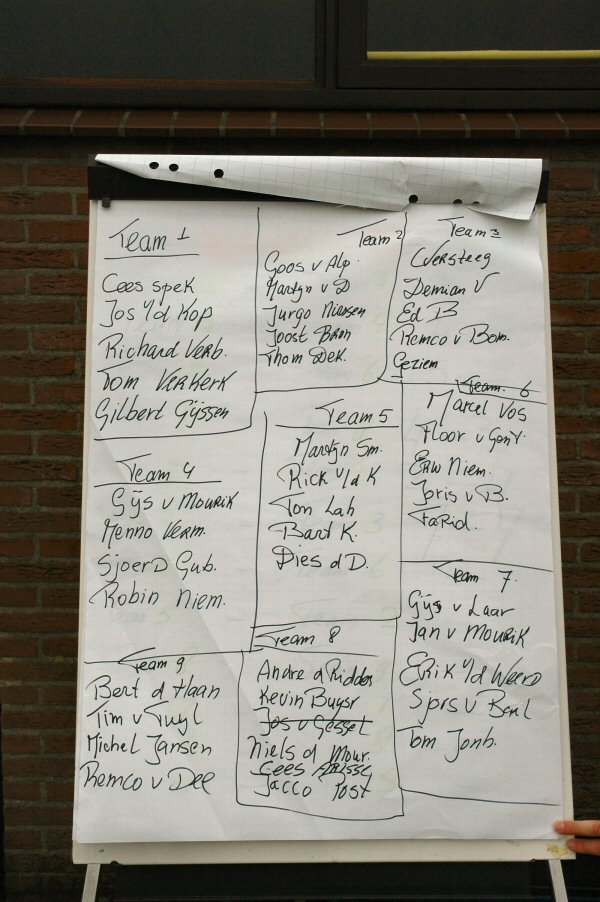 Team 1
Cees Spek
Jos v/d Kop
Richard Verb.
Tom Verkerk
Gilbert Gijssen
Team 2
Goos v Alp.
Martijn v D
Jurgo Niensen
Joost Bron
Thom Dek.
Team 3
C Versteeg
Demian V
Ed B
Remco v Bom.
Geziem
Team 4
Gijs v Mourik
Menno Verm.
Sjoerd Gub.
Robin Niem.
Team 5
Martijn Sm.
Rick v/d K
Ton Lah
Bart K.
Dies d D.
Team 6
Marcel Vos
Floor v Gent.
Erw Niem.
Joris v B.
Farid.
Team 7
Gijs v Laar
Jan v Mourik
Erik v/d Weerd
Sjors v Beul
Tom Jonh.
Team 8
Andre d Ridder
Kevin Buysr
Jos v Gessel
Niels d Mour.
Cees
Jacco Post
Team 9
Bert d Haan
Tim v Tuyl
Michel Jansen
Remco v Dee